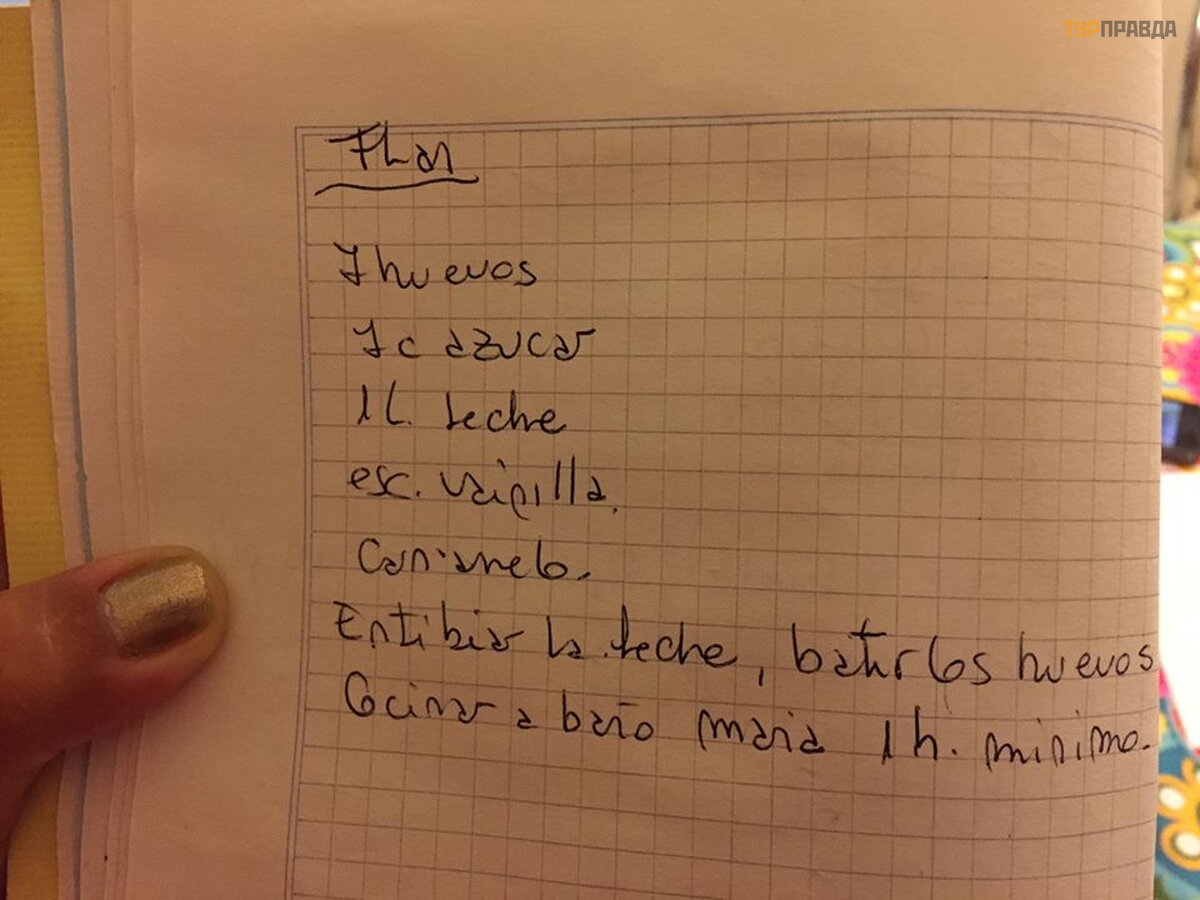 ТУРПРАВДА
Flan
7 huevos
7 c azucar
1 L. leche
esc. vainilla.
Caramelo.
Entibiar la leche, batir los huevos
Cocinar a baño maria 1 h. minimo.